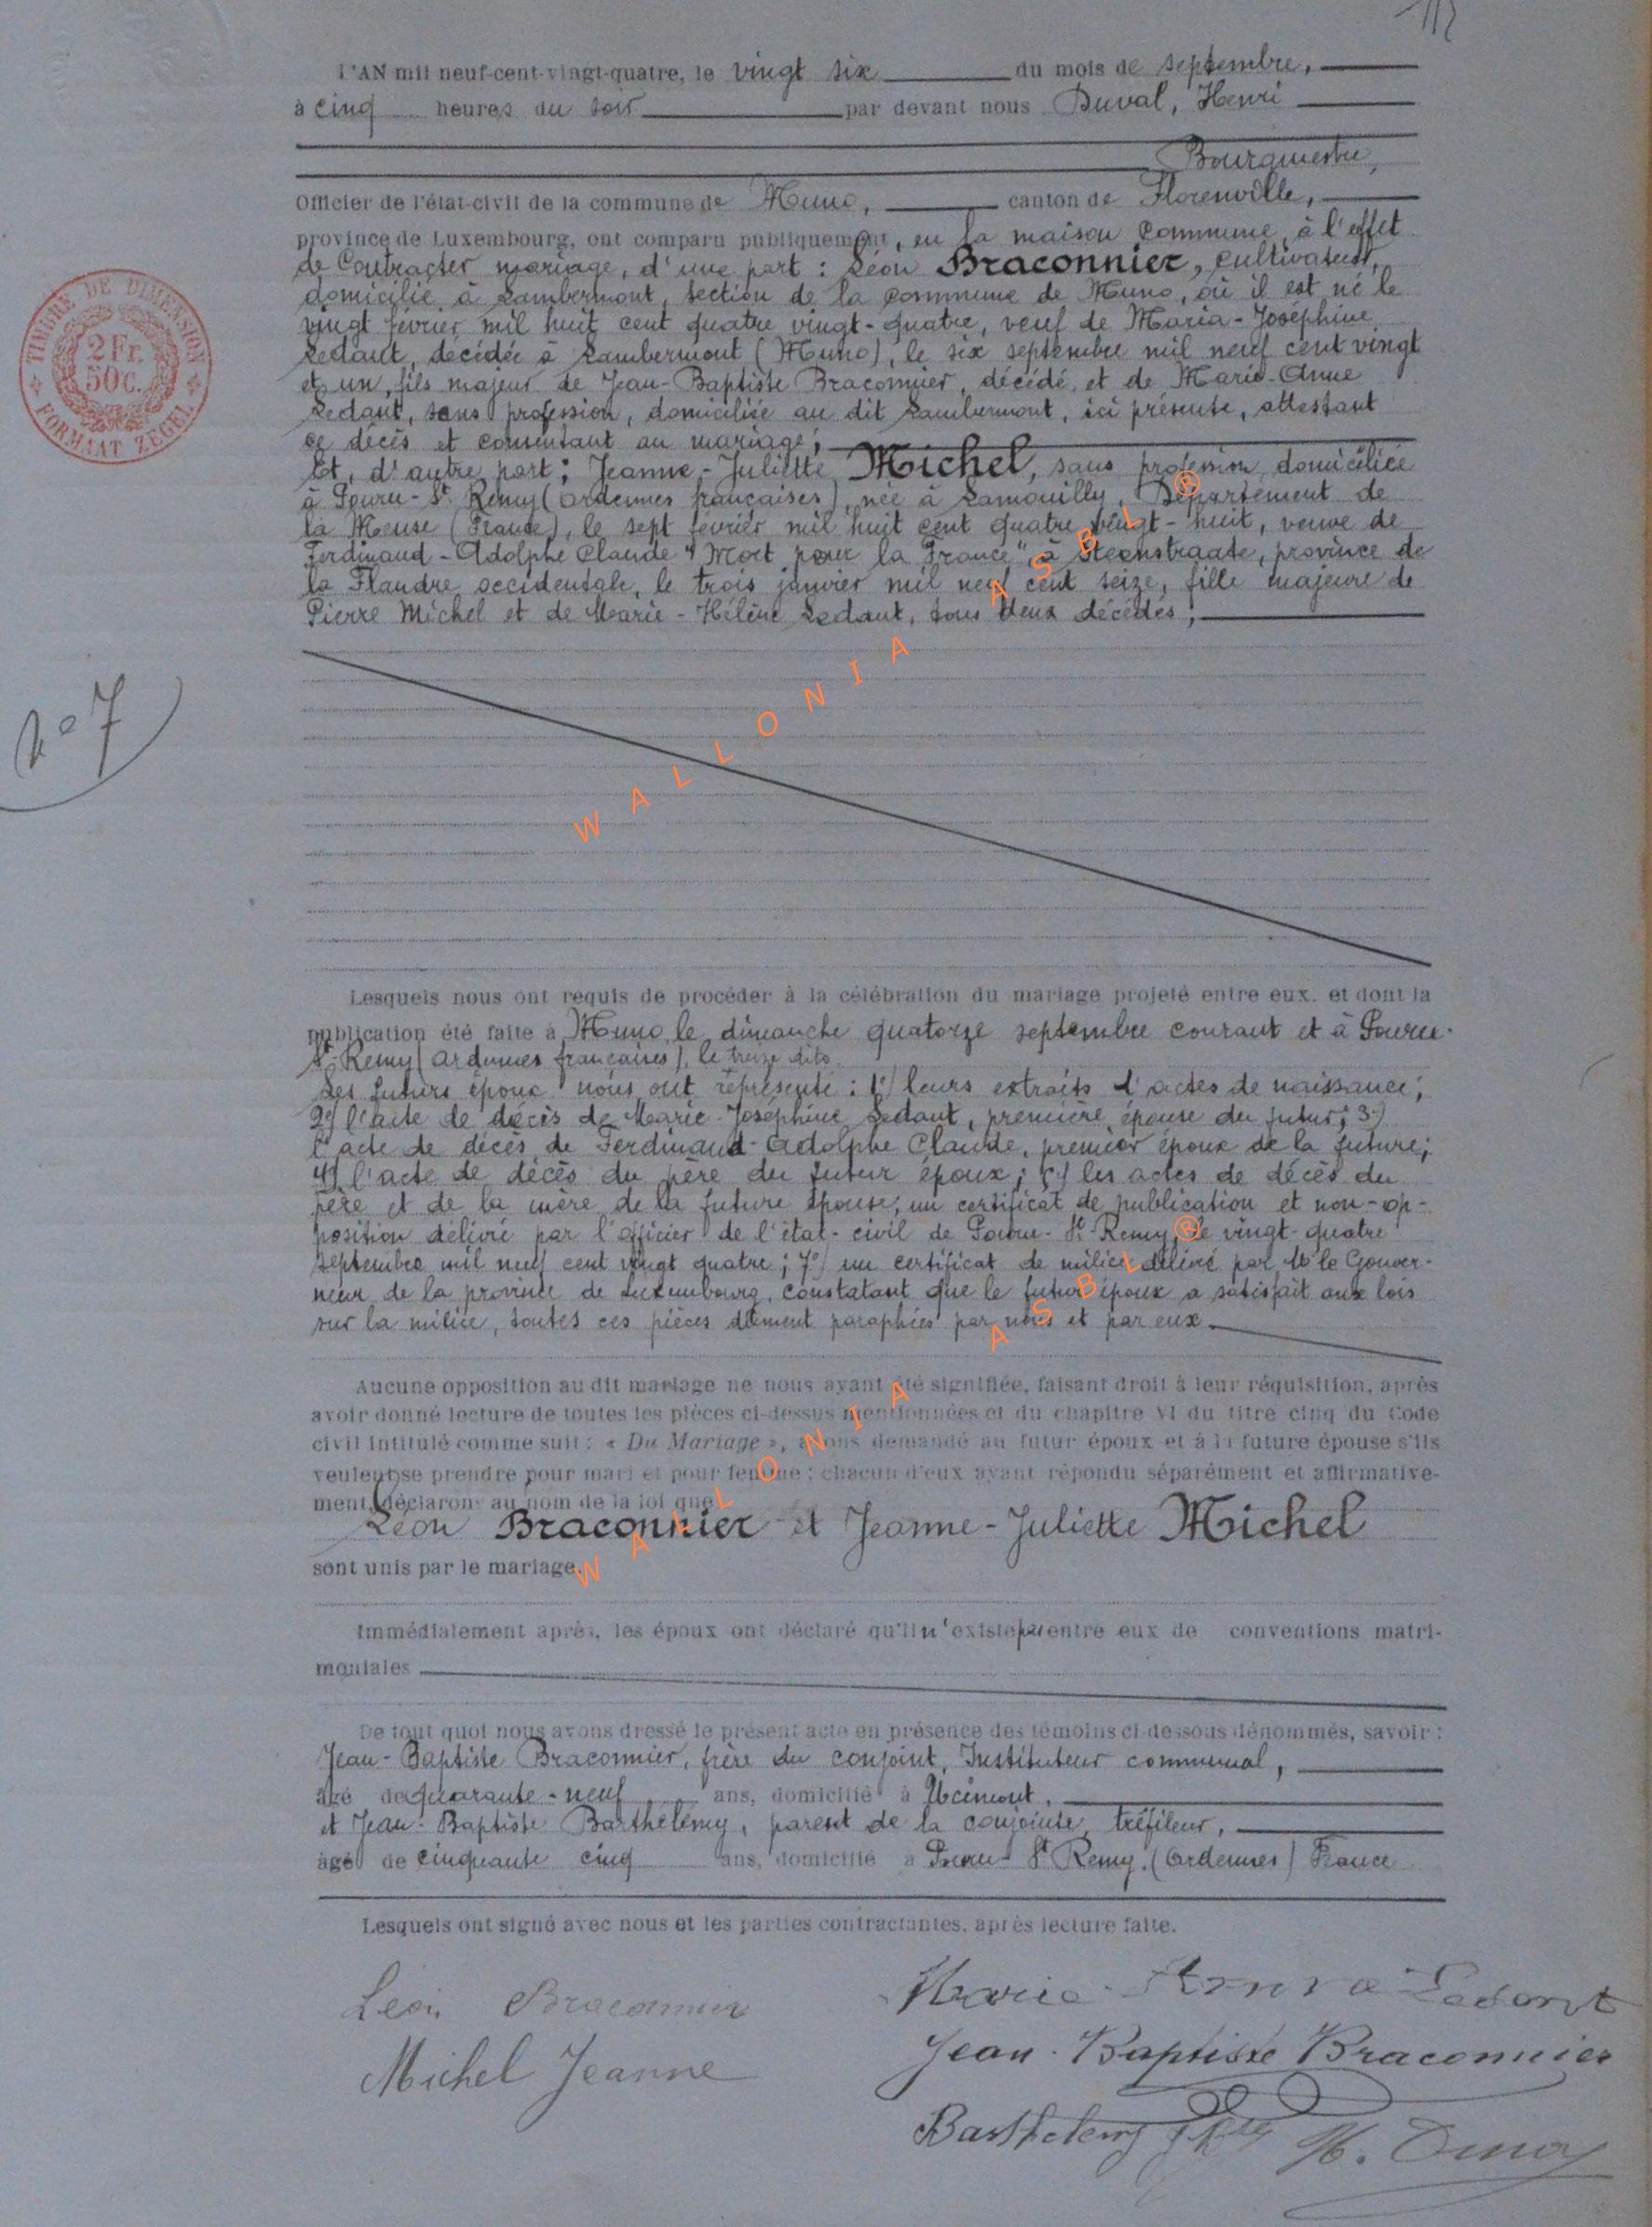 L'AN mil neuf-cent-vingt-quatre, le vingt six du mois de septembre,
à cinq heures du soir par devant nous Duval, Henri
Bourgmestre,
Officier de l'état-civil de la commune de Muno, canton de Florenville,
province de Luxembourg, ont comparu publiquement, en la maison commune, à l'effet
de contracter mariage, d'une part : Léon Braconnier, cultivateur,
domicilié à Lambermont, section de la commune de Muno, où il est né le
vingt février mil huit cent quatre vingt-quatre, veuf de Maria-Joséphine
Ledant, décédée à Lambermont (Muno), le six septembre mil neuf cent vingt
et un, fils majeur de Jean-Baptiste Braconnier, décédé, et de Marie-Anne
Ledant, sans profession, domiciliée au dit Lambermont, ici présente, attestant
ce décès et consentant au mariage;
Et, d'autre part; Jeanne-Juliette Michel, sans profession, domiciliée
à Pouru-St Remy (Ardennes françaises), née à Lamouilly, Département de
la Meuse (France), le sept février mil huit cent quatre vingt-huit, veuve de
Ferdinand-Adolphe Claude "Mort pour la France" à Steenstraate, province de
la Flandre occidentale, le trois janvier mil neuf cent seize, fille majeure de
Pierre Michel et de Marie-Hélène Ledant, tous deux décédés;
No 7
Lesquels nous ont requis de procéder à la célébration du mariage projeté entre eux, et dont la
publication été faite à Muno le dimanche quatorze septembre courant et à Pouru-
St Remy (Ardennes françaises), le treize dito.
Les futurs époux nous ont représenté : 1°) leurs extraits d'actes de naissance;
2°) l'acte de décès de Marie-Joséphine Ledant, première épouse du futur; 3°)
l'acte de décès de Ferdinand-Adolphe Claude, premier époux de la future;
4°) l'acte de décès du père du futur époux; 5°) les actes de décès du
père et de la mère de la future épouse; un certificat de publication et non-op-
position délivré par l'officier de l'état-civil de Pouru-St Remy, le vingt-quatre
septembre mil neuf cent vingt quatre; 7°) un certificat de milice délivré par Mr le Gouver-
neur de la province de Luxembourg, constatant que le futur époux a satisfait aux lois
sur la milice, toutes ces pièces dûment paraphées par nous et par eux.
Aucune opposition au dit mariage ne nous ayant été signifiée, faisant droit à leur réquisition, après
avoir donné lecture de toutes les pièces ci-dessus mentionnées et du chapitre VI du titre cinq du Code
civil intitulé comme suit : « Du Mariage », avons demandé au futur époux et à la future épouse s'ils
veulent se prendre pour mari et pour femme ; chacun d'eux ayant répondu séparément et affirmative-
ment, déclarons au nom de la loi que
Léon Braconnier et Jeanne-Juliette Michel
sont unis par le mariage.
Immédiatement après, les époux ont déclaré qu'il n'existe pas entre eux de conventions matri-
moniales
De tout quoi nous avons dressé le présent acte en présence des témoins ci-dessous dénommés, savoir :
Jean-Baptiste Braconnier, frère du conjoint, Instituteur communal,
âgé de quarante-neuf ans, domicilié à Ucimont,
et Jean-Baptiste Barthélemy, parent de la conjointe, tréfileur,
âgé de cinquante cinq ans, domicilié à Pouru-St Remy. (Ardennes) France
Lesquels ont signé avec nous et les parties contractantes, après lecture faite.
Léon Braconnier
Marie-Anna Ledant
Michel Jeanne
Jean-Baptiste Braconnier
Barthelemy
H. Duval
TIMBRE DE DIMENSION
2 Fr. 50c.
FORMAAT ZEGEL
WALLONIA ASBL ®
WALLONIA ASBL ®